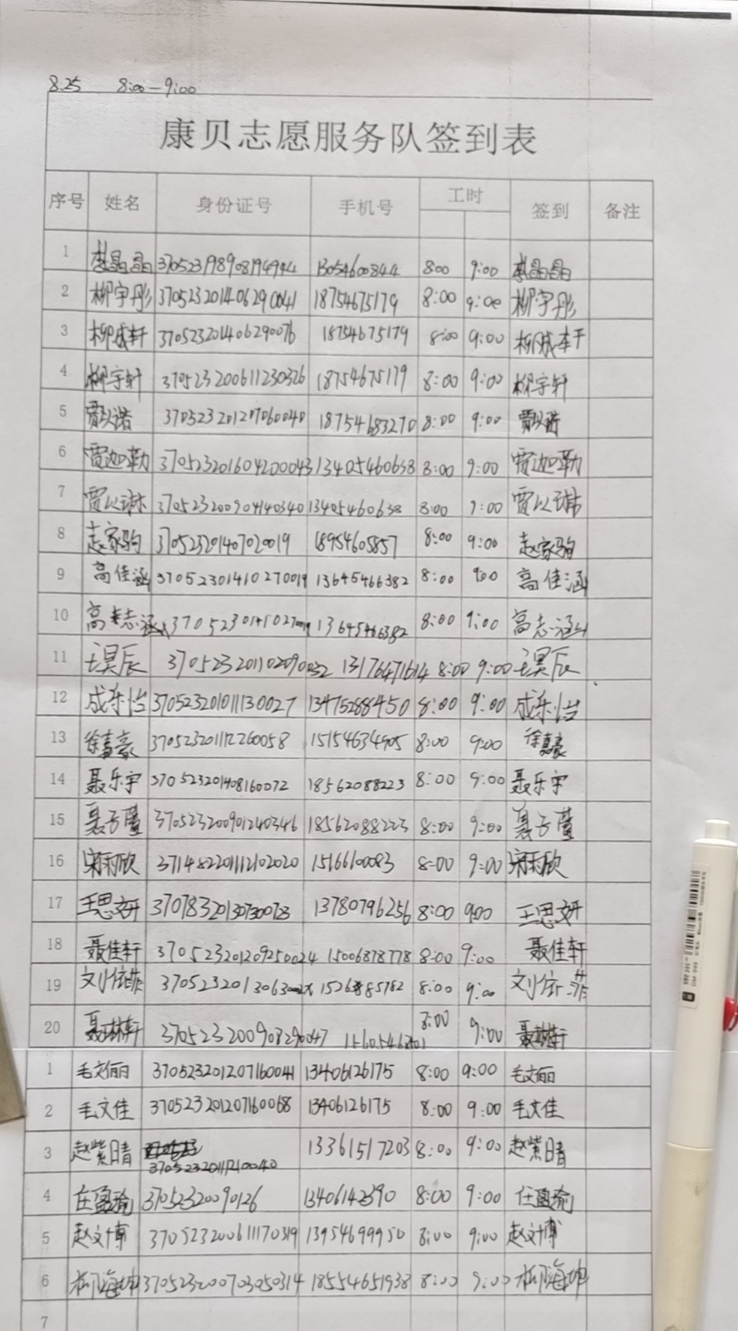 8.25 8:00-9:00
康贝志愿服务队签到表
序号 姓名 身份证号 手机号 工时 签到 备注
1 晶晶 8:00 9:00 晶晶
2 柳宇彤 18754675179 8:00 9:00 柳宇彤
3 柳成轩 370523201406290076 18754675179 8:00 9:00 柳成轩
4 柳宇轩 370523200611230326 18754675179 8:00 9:00 柳宇轩
5 贾以诺 370523201207060040 18754683270 8:00 9:00 贾以诺
6 贾迦勒 370523201604200043 13405460658 8:00 9:00 贾迦勒
7 贾以琳 370523200904140340 8:00 9:00 贾以琳
8 赵家驹 370523201407020019 18954605857 8:00 9:00 赵家驹
9 高佳涵 370523201410270019 13645466382 8:00 9:00 高佳涵
10 高志涵 13645466382 8:00 9:00 高志涵
11 王昊辰 370523201102090032 13176471614 8:00 9:00 王昊辰
12 成乐怡 370523201011130027 13475288450 8:00 9:00 成乐怡
13 370523201112260058 15154634905 8:00 9:00
14 聂乐宇 370523201408160072 18562088223 8:00 9:00 聂乐宇
15 聂子萱 370523200901240346 18562088223 8:00 9:00 聂子萱
16 371482201112102020 8:00 9:00
17 王思妍 8:00 9:00 王思妍
13780796256
18 聂佳轩 370523201209250024 15006878778 8:00 9:00 聂佳轩
19 刘依菲 8:00 9:00 刘依菲
20 聂琳轩 370523200908290047 8:00 9:00 聂琳轩
1 毛文俪 370523201207160041 13406126175 8:00 9:00 毛文俪
2 毛文佳 370523201207160068 13406126175 8:00 9:00 毛文佳
3 赵紫晴 370523201112100040 13361517203 8:00 9:00 赵紫晴
4 任盈瑜 37052320090126 8:00 9:00 任盈瑜
5 赵文博 370523200611170319 13954699950 8:00 9:00 赵文博
6 柳海坤 370523200703050314 18554651938 8:00 9:00 柳海坤
7